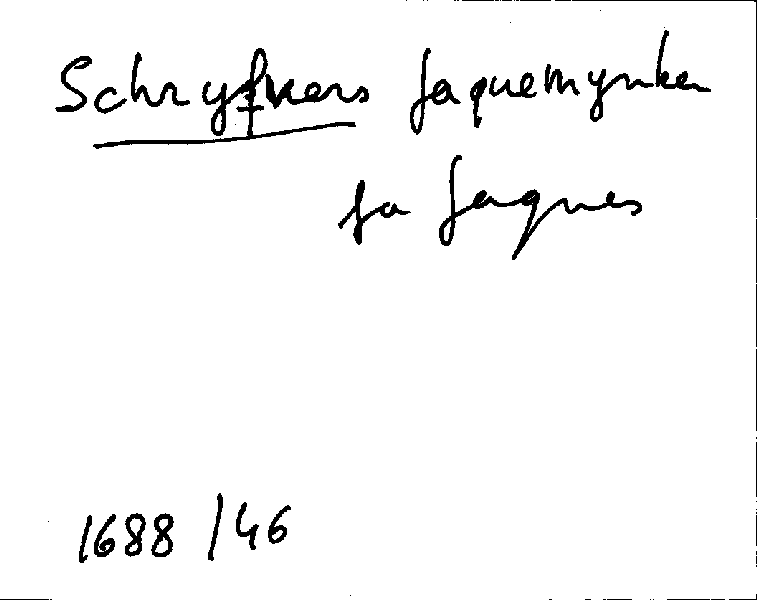 Schryfvers Jaquemynken
fa Jaques
1688 / 46